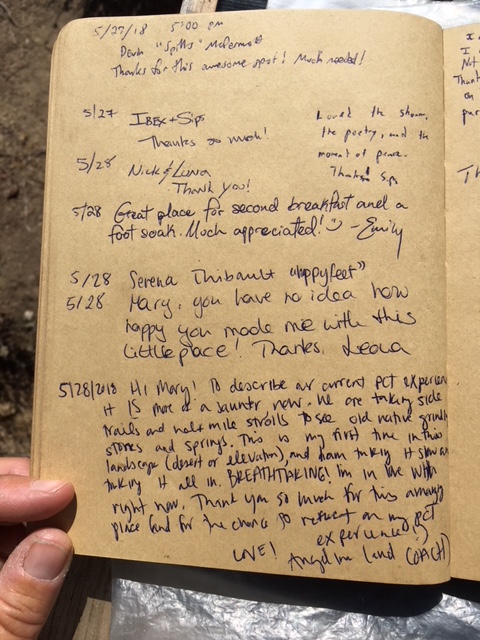 5/27/18 5:00 pm
"Spills"
Thanks for this awesome spot! Much needed!
5/27 IBEX + Sips
Thanks so much!
Loved the shower,
the poetry, and the
moment of peace.
Thanks! Sips
5/28 Nick & Luna
Thank you!
5/28 Great place for second breakfast and a
foot soak. Much appreciated! :) - Emily
5/28 Serena Thibault "Happyfeet"
5/28 Mary, you have no idea how
happy you made me with this
little place! Thanks, Leona
5/28/2018 Hi Mary! To describe our current PCT experien
it IS more of a saunter, now. We are taking side
trails and half mile strolls to see old native grindi
stones and springs. This is my first time in this
landscape (desert or elevation), and taking it slow an
taking it all in. BREATHTAKING! I'm in love with
right now. Thank you so much for this amazing
place (and for the chance to reflect on my PCT
experience!)
LOVE! Angelina Lund
Not
Than
on
Th